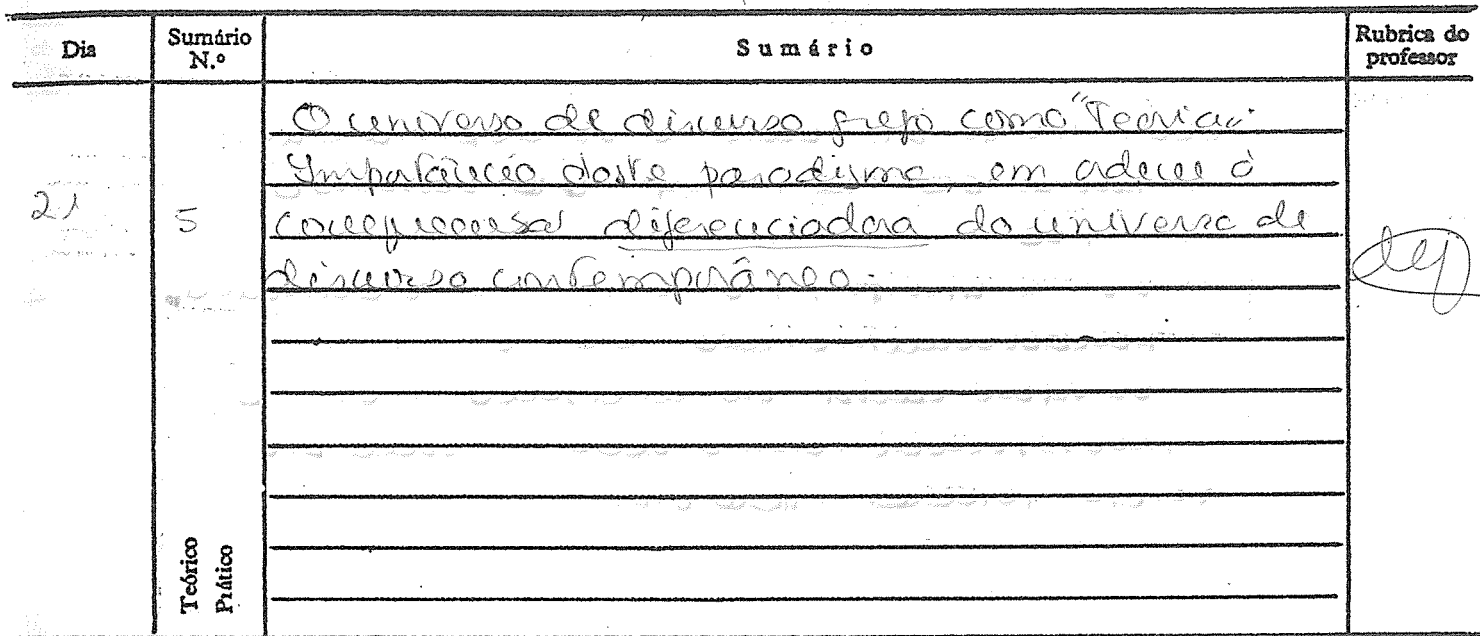 Dia
Sumário N.º
Sumário
Rubrica do professor
21
5
O universo de discurso grego como "Teoria".
Importância deste paradigma, em ordem à
compreensão diferenciadora do universo de
discurso contemporâneo.
Teórico
Prático